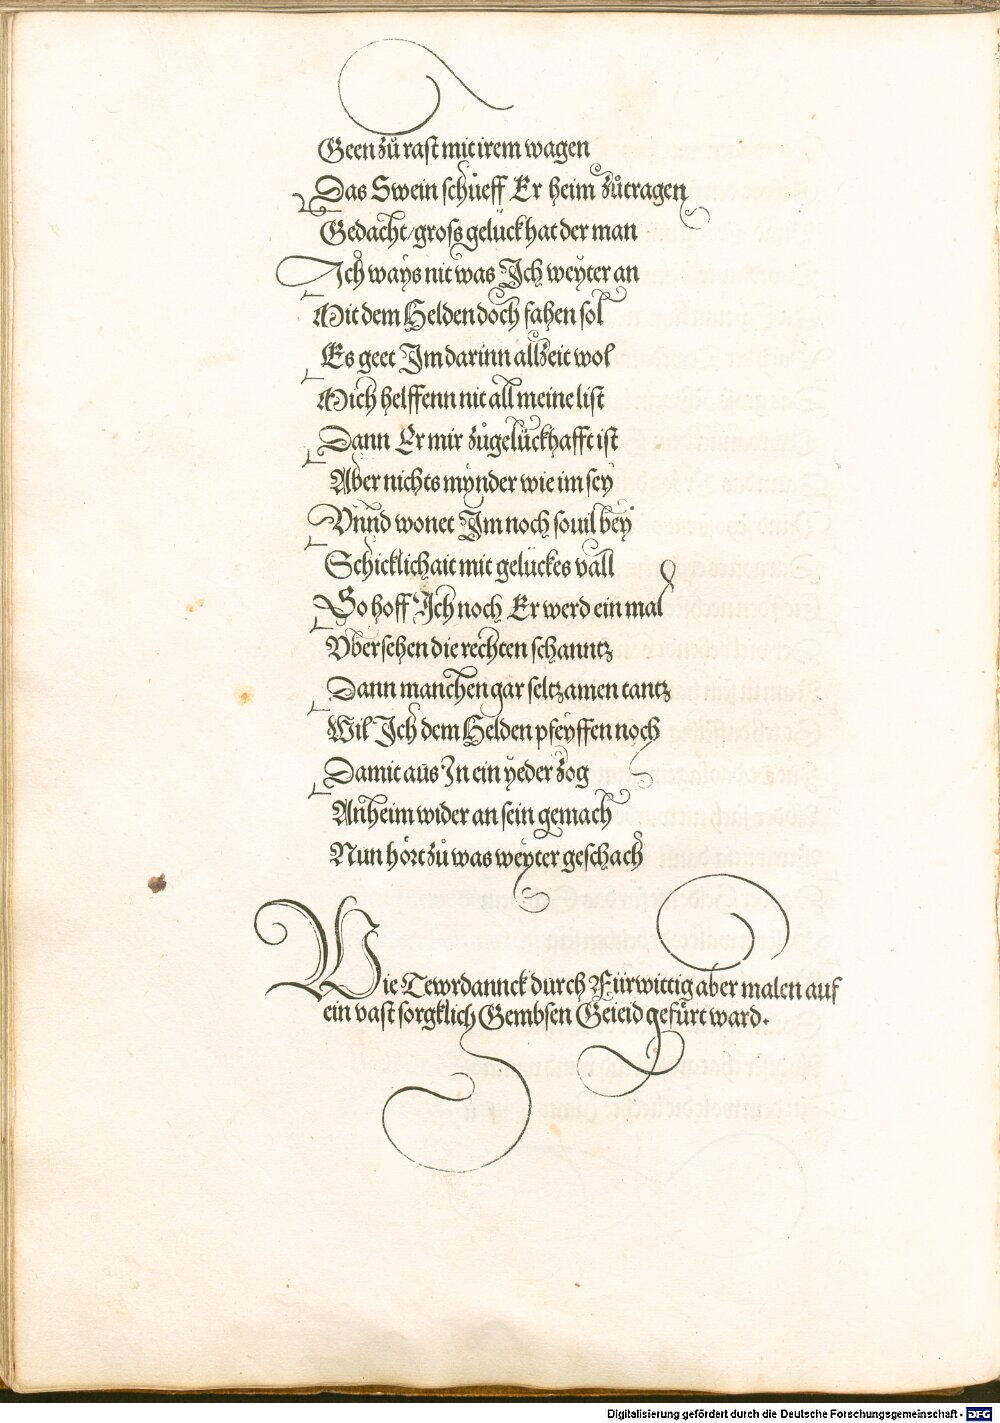 Geen zů rast mit irem wagen
Das Swein schůeff Er heim zůtragen
Gedacht/ gross gelück hat der man
Ich ways nit was Ich weyter an
Mit dem Helden doch fahen sol
Es geet Im darinn allzeit wol
Mich helffenn nit all meine list
Dann Er mir zůgelückhafft ist
Aber nichts mynder wie im sey
Vnnd wonet Im noch souil bey
Schicklichait mit gelückes vall
So hoff Ich noch Er werd ein mal
Vbersehen die rechten schanntz
Dann manchen gar seltzamen tantz
Wil Ich dem Helden pfeyffen noch
Damit aus In ein yeder zog
Anheim wider an sein gemach
Nun hört zů was weyter geschach
Wie Tewrdannck durch Fürwittig aber malen auf
ein vast sorgklich Gembsen Geieid gefürt ward.
Digitalisierung gefördert durch die Deutsche Forschungsgemeinschaft - DFG